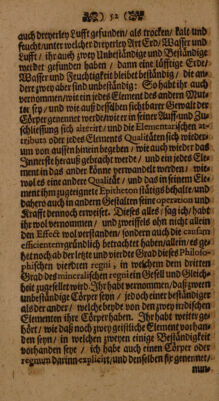 52
auch dreyerley Lufft gefunden/ als trocken/ kalt und
feucht/unter welcher dreyerley Art Erd/Wasser und
Lufft/ ihr auch zwey Unbeständige und Beständige
werdet gefunden haben/ dann eine lüfftige Erde/
Wasser und Feuchtigkeit bleibet beständig/ die an-
dere zwey aber sind unbeständig: So habt ihr auch
vernommen/wie ein jedes Element des andern Mut-
ter sey/ und wie auß desselben sichtbarer Gewalt der
Cörper genennet werde/wie er in seiner Auff- und Zu-
schliessung sich alterirt/ und die Elementarischen at-
tributa oder jedes Elements Qualitäten sich wieder-
um von aussen hinein begeben/ wie auch wieder das
Innerste herauß gebracht werde/ und ein jedes Ele-
ment in das ander könne verwandelt werden/ wie-
wol es eine andere Qualität/ und das in seinem Ele-
ment ihm zugenannte Epitheton stätigs behalte/und
dahero auch in andern Gestalten seine operation und
Krafft dennoch erweiset. Dieses alles/ sag ich/ habt
ihr wol vernommen/ und zweiffels ohn nicht allein
den Effect wol verstanden/ sondern auch die causam
efficientem gründlich betrachtet haben/allein/es ge-
het noch ab der letzte und vierdte Grad dieses Philoso-
phischen vierdten regni, in welchem dem dritten
Grad des mineralischen regni ein Gesell und Gleich-
heit zugesellet wird. Ihr habt vernommen/daß zween
unbeständige Cörper seyn/ jedoch einer beständiger
als der ander/ welche beyde von den zwey irrdischen
Elementen ihre Cörper haben. Ihr habt weiter ge-
hört/ wie daß noch zwey geistliche Element vorhan-
den seyn/ in welchen zweyen einige Beständigkeit
vorhanden sey/ ich habe auch einen Cörper oder
regnum darinn explicirt, und denselben fix genennet/
nun-